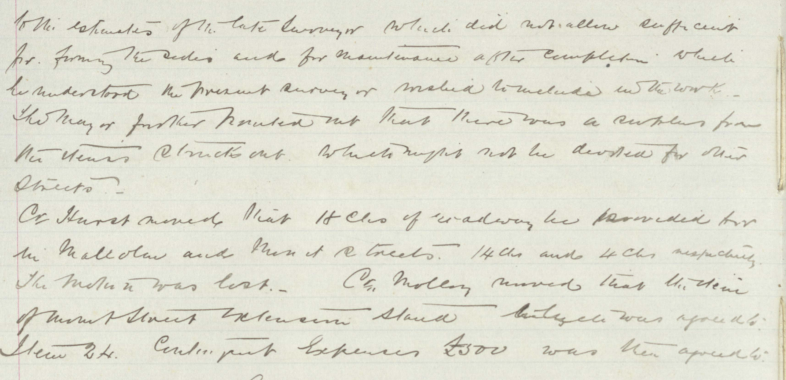 to the estimates of the late Surveyor which did not allow sufficient
for forming the sides and for maintenance after completion which
he understood the present surveyor wished to include in the work -
The Mayor further pointed out that there was a surplus from
the items struck out which might not be devoted for other
Streets -
Cr Hurst moved that 18 Chs of roadway be provided for
in and Streets. 14 Chs and 4 Chs respectively.
The Motion was lost. - Cr. Molloy moved that the item
of Mount Street Extension Stand was agreed to.
Item 24. Contingent Expenses £300 was then agreed to.